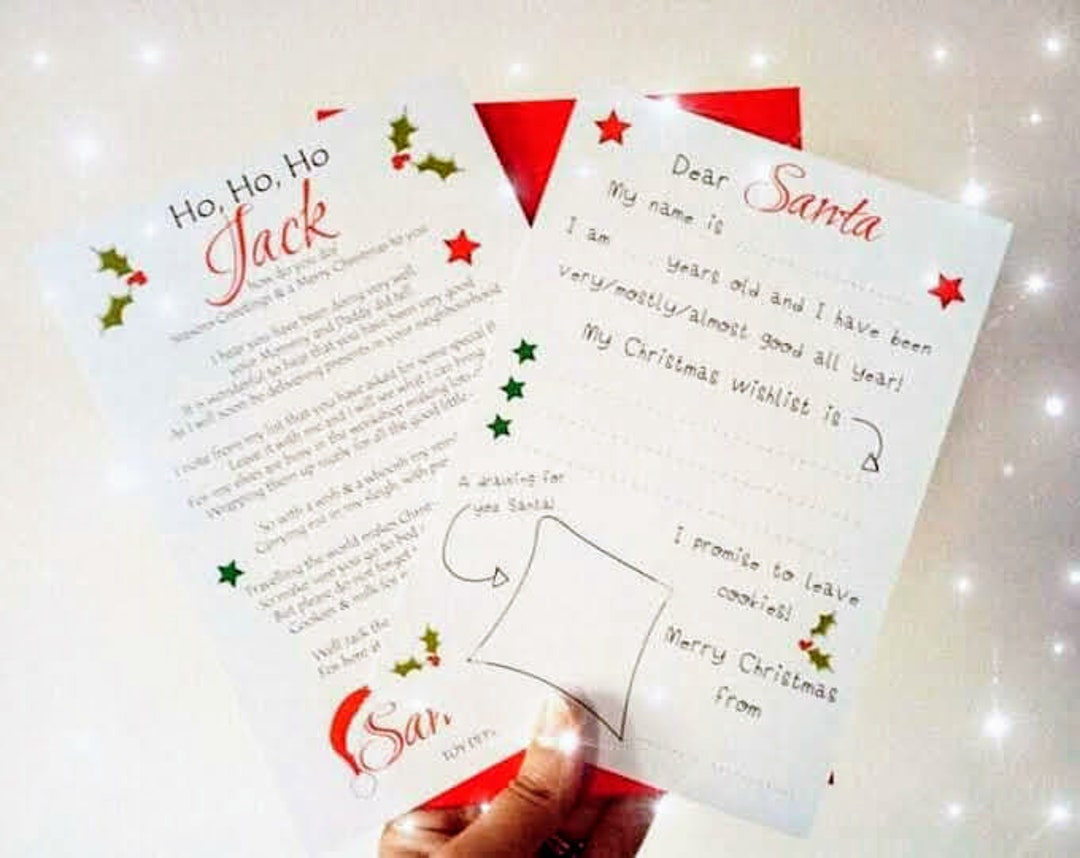 Ho, Ho, Ho
Jack
How do you do?
Season Greetings & a Merry Christmas to you
I hear you have been doing very well
your Mummy and Daddy did tell!
It is wonderful to hear that you have been very good
As I will soon be delivering presents in your neighbourhood
I note from my list that you have asked for some special
Leave it with me and I will see what I can bring
For my elves are here in the workshop making lots
Wrapping them up ready for all the good little
So with a swish & a whoosh my
Carrying me in my sleigh, with
Travelling the world makes
So make sure you go to bed
But please do not forget
Cookies & milk for
Well Jack the
San
Dear Santa
My name is
I am years old and I have been
very/mostly/almost good all year!
My Christmas wishlist is
A drawing for
you Santa!
I promise to leave
cookies!
Merry Christmas
from